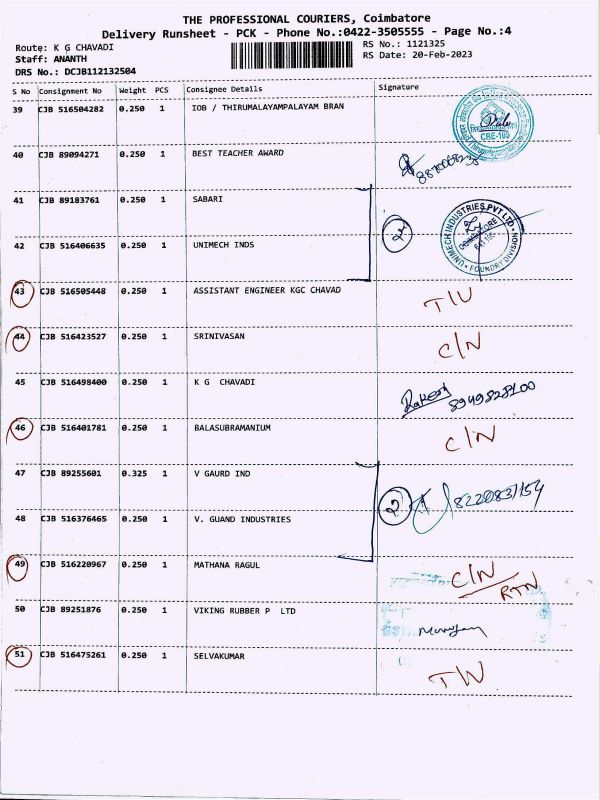 THE PROFESSIONAL COURIERS, Coimbatore
Delivery Runsheet - PCK - Phone No.:0422-3505555 - Page No.:4
Route: K G CHAVADI RS No.: 1121325
Staff: ANANTH RS Date: 20-Feb-2023
DRS No.: DCJB112132504
S No Consignment No Weight PCS Consignee Details Signature
39 CJB 516504282 0.250 1 IOB / THIRUMALAYAMPALAYAM BRAN
CBE-105
40 CJB 89094271 0.250 1 BEST TEACHER AWARD
41 CJB 89183761 0.250 1 SABARI
UNIMECH INDUSTRIES PVT LTD
COIMBATORE
FOUNDRY DIVISION
42 CJB 516406635 0.250 1 UNIMECH INDS
43 CJB 516505448 0.250 1 ASSISTANT ENGINEER KGC CHAVAD
44 CJB 516423527 0.250 1 SRINIVASAN C/N
45 CJB 516498400 0.250 1 K G CHAVADI Rakesh 8949828100
46 CJB 516401781 0.250 1 BALASUBRAMANIUM C/N
47 CJB 89255601 0.325 1 V GAURD IND
2 8220831154
48 CJB 516376465 0.250 1 V. GUAND INDUSTRIES
49 CJB 516220967 0.250 1 MATHANA RAGUL C/N RTN
50 CJB 89251876 0.250 1 VIKING RUBBER P LTD
51 CJB 516475261 0.250 1 SELVAKUMAR